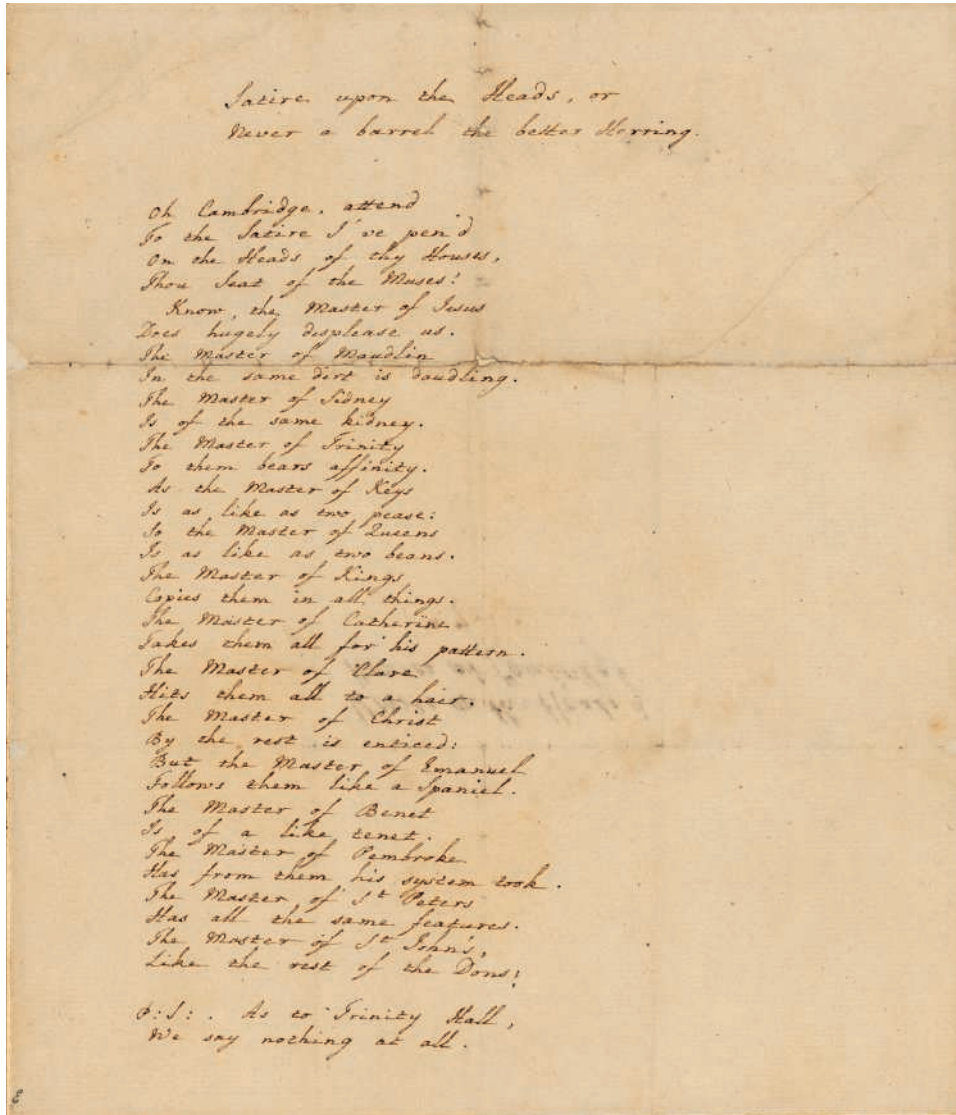 Satire upon the Heads, or
Never a barrel the better Herring.
Oh Cambridge, attend
To the Satire I've pen'd
On the Heads of thy Houses,
Thou Seat of the Muses!
Know, the Master of Jesus
Does hugely displease us.
The Master of Maudlin
In the same dirt is daudling.
The Master of Sidney
Is of the same kidney.
The Master of Trinity
To them bears affinity.
As the Master of Keys
Is as like as two pease:
So the Master of Queens
Is as like as two beans.
The Master of Kings
Copies them in all things.
The Master of Catherine
Takes them all for his pattern.
The Master of Clare
Hits them all to a hair.
The Master of Christ
By the rest is enticed:
But the Master of Emanuel
Follows them like a Spaniel.
The Master of Benet
Is of a like tenet.
The Master of Pembroke
Has from them his system took.
The Master of St Peters
Has all the same features.
The Master of St John's,
Like the rest of the Dons;
P:S:. As to Trinity Hall,
We say nothing at all.